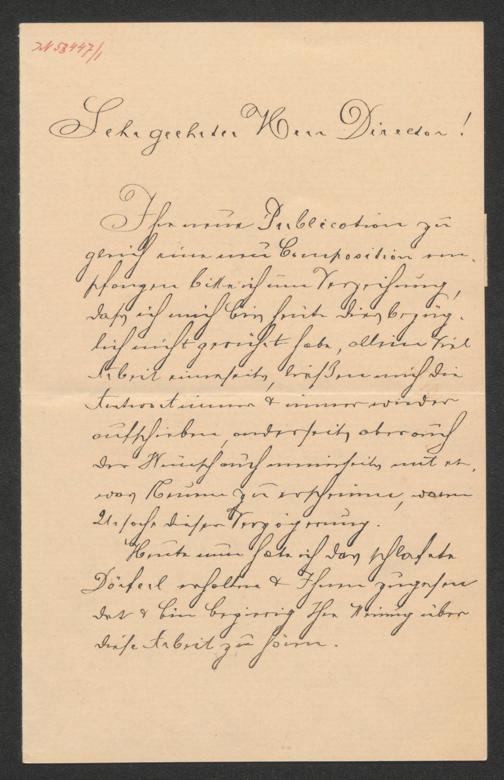 IN 53447/1
Sehr geehrter Herr Director!
Ihre neue Publication zu
gleich eine neue Composition em-
pfangen bitte ich um Verzeihung,
daß ich mich bis heute dies bezüg-
lich nicht gerührt habe, allein viel
Arbeit einerseits, ließen mich die
Antwort immer & immer wieder
aufschieben, anderseits aber auch
der Wunsch auch meinerseits mit et-
was Neuem zu erscheinen, waren
Ursache dieser Verzögerung.
Heute nun habe ich das schlafete
Dörferl erhalten & Ihnen zugesen
det & bin begierig Ihre Meinung über
diese Arbeit zu hören.